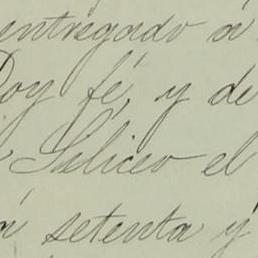 entregado á
Doy fé, y de
Siliceo el
setenta y